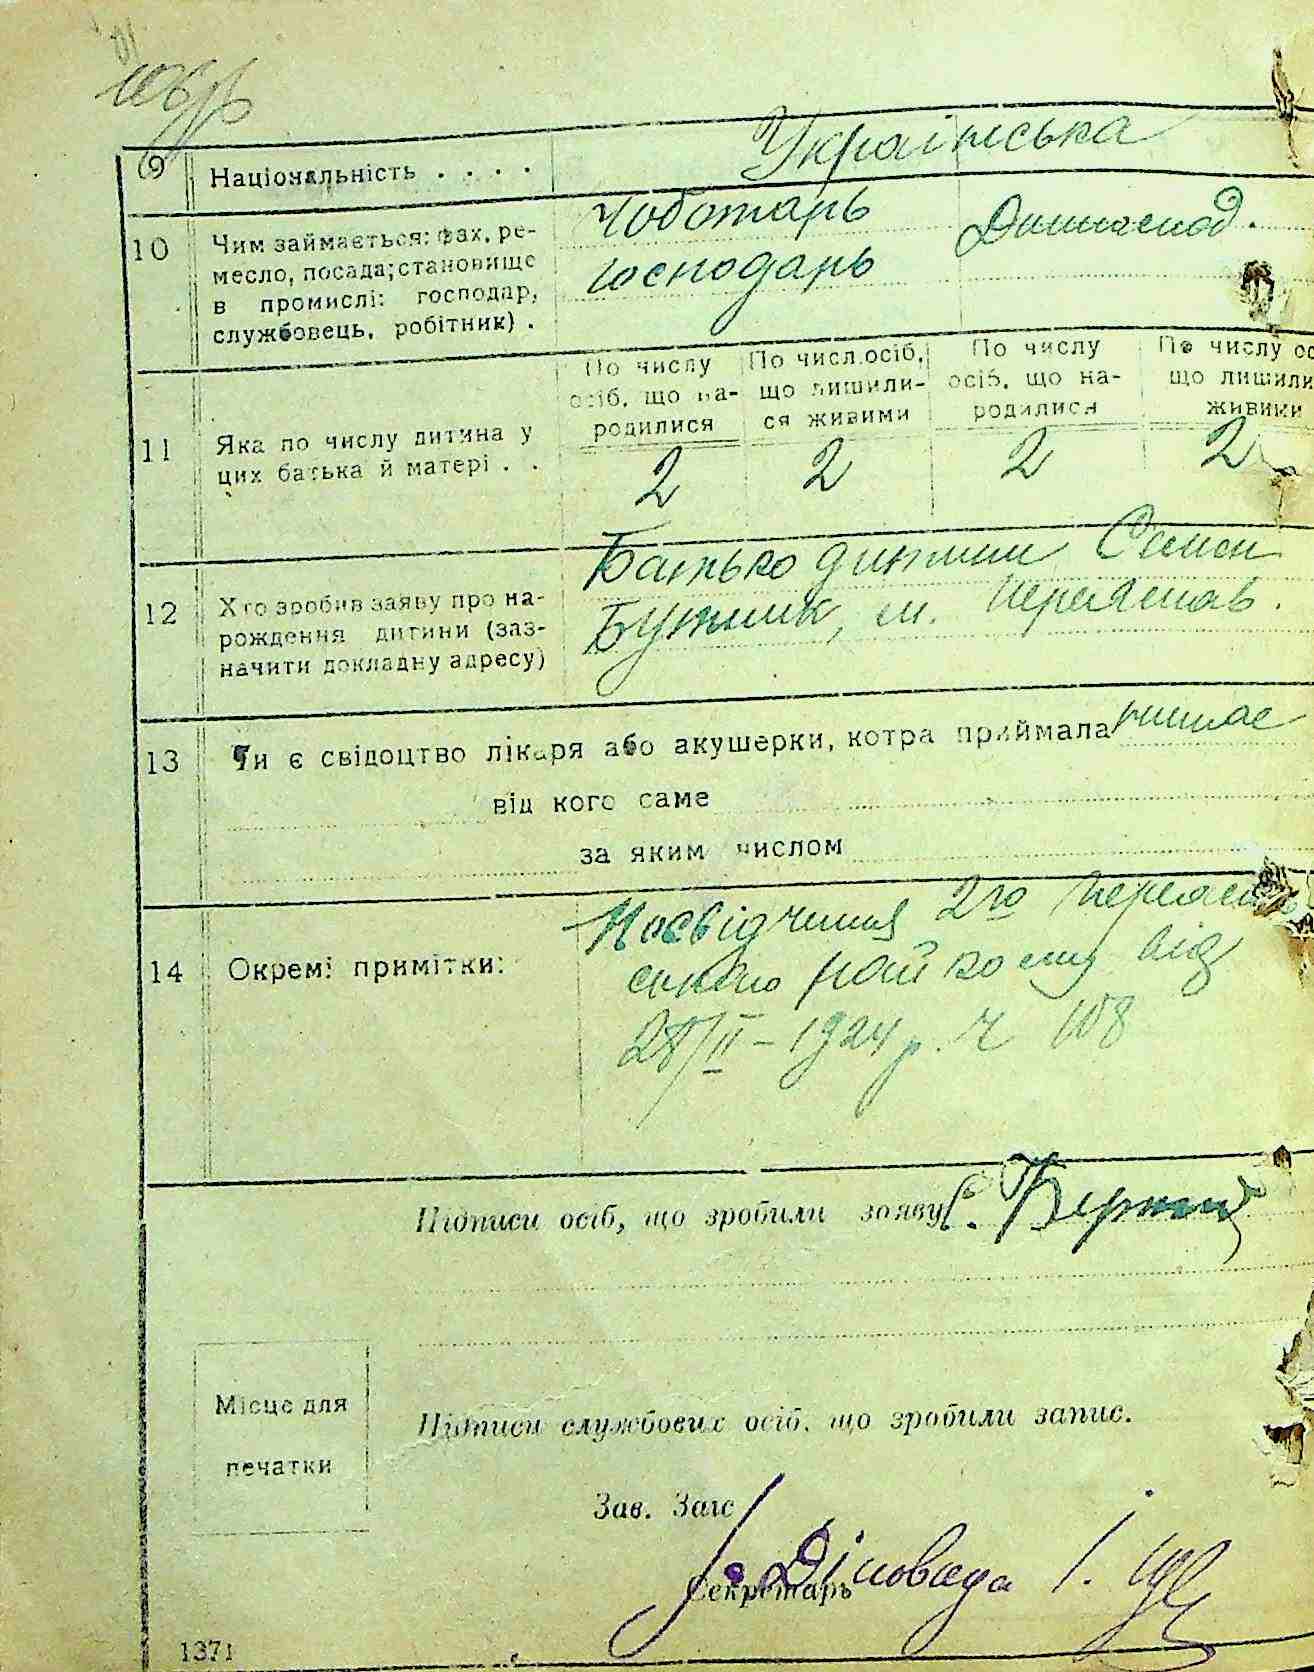 9 Національність . . . . Українська
10 Чим займається: фах, ре-
месло, посада; становище
в промислі: господар,
службовець, робітник) .
Чоботарь
господарь
Домогоспод.
11 Яка по числу дитина у
цих батька й матері . .
По числу
осіб, що на-
родилися
2
По числ.осіб,
що лишили-
ся живими
2
По числу
осіб, що на-
родилися
2
По числу ос
що лишили
живими
2
12 Хто зробив заяву про на-
рождення дитини (заз-
начити докладну адресу)
Батько дитини Семен
Бутник, м. Переяслав.
13 Чи є свідоцтво лікаря або акушерки, котра приймала немає
від кого саме
за яким числом
14 Окремі примітки:
Посвідчення 2го Переяслав
ського райкому від
28/II – 1924 р. Ч 108
Підписи осіб, що зробили заяву С.
Місце для
печатки
Підписи службових осіб, що зробили запис.
Зав. Загс
Секретарь
1371